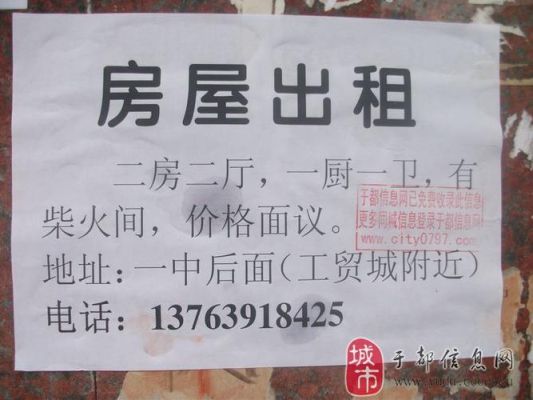 房屋出租
二房二厅，一厨一卫，有
柴火间，价格面议。
于都信息网已免费收录此信息
更多同城信息登录于都信息网
www.city0797.com
地址：一中后面（工贸城附近）
电话：13763918425
城市
于都信息网